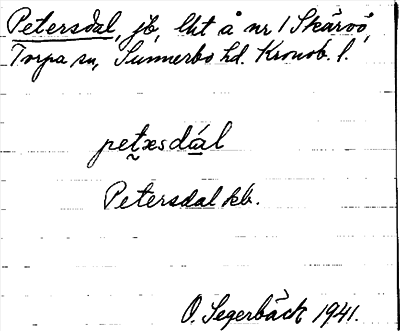 Petersdal, jb, lht å nr 1 Skärvö,
Torpa sn, Sunnerbo hd. Kronob. l.
petxsdál
Petersdal kb.
O. Segerbäck 1941.